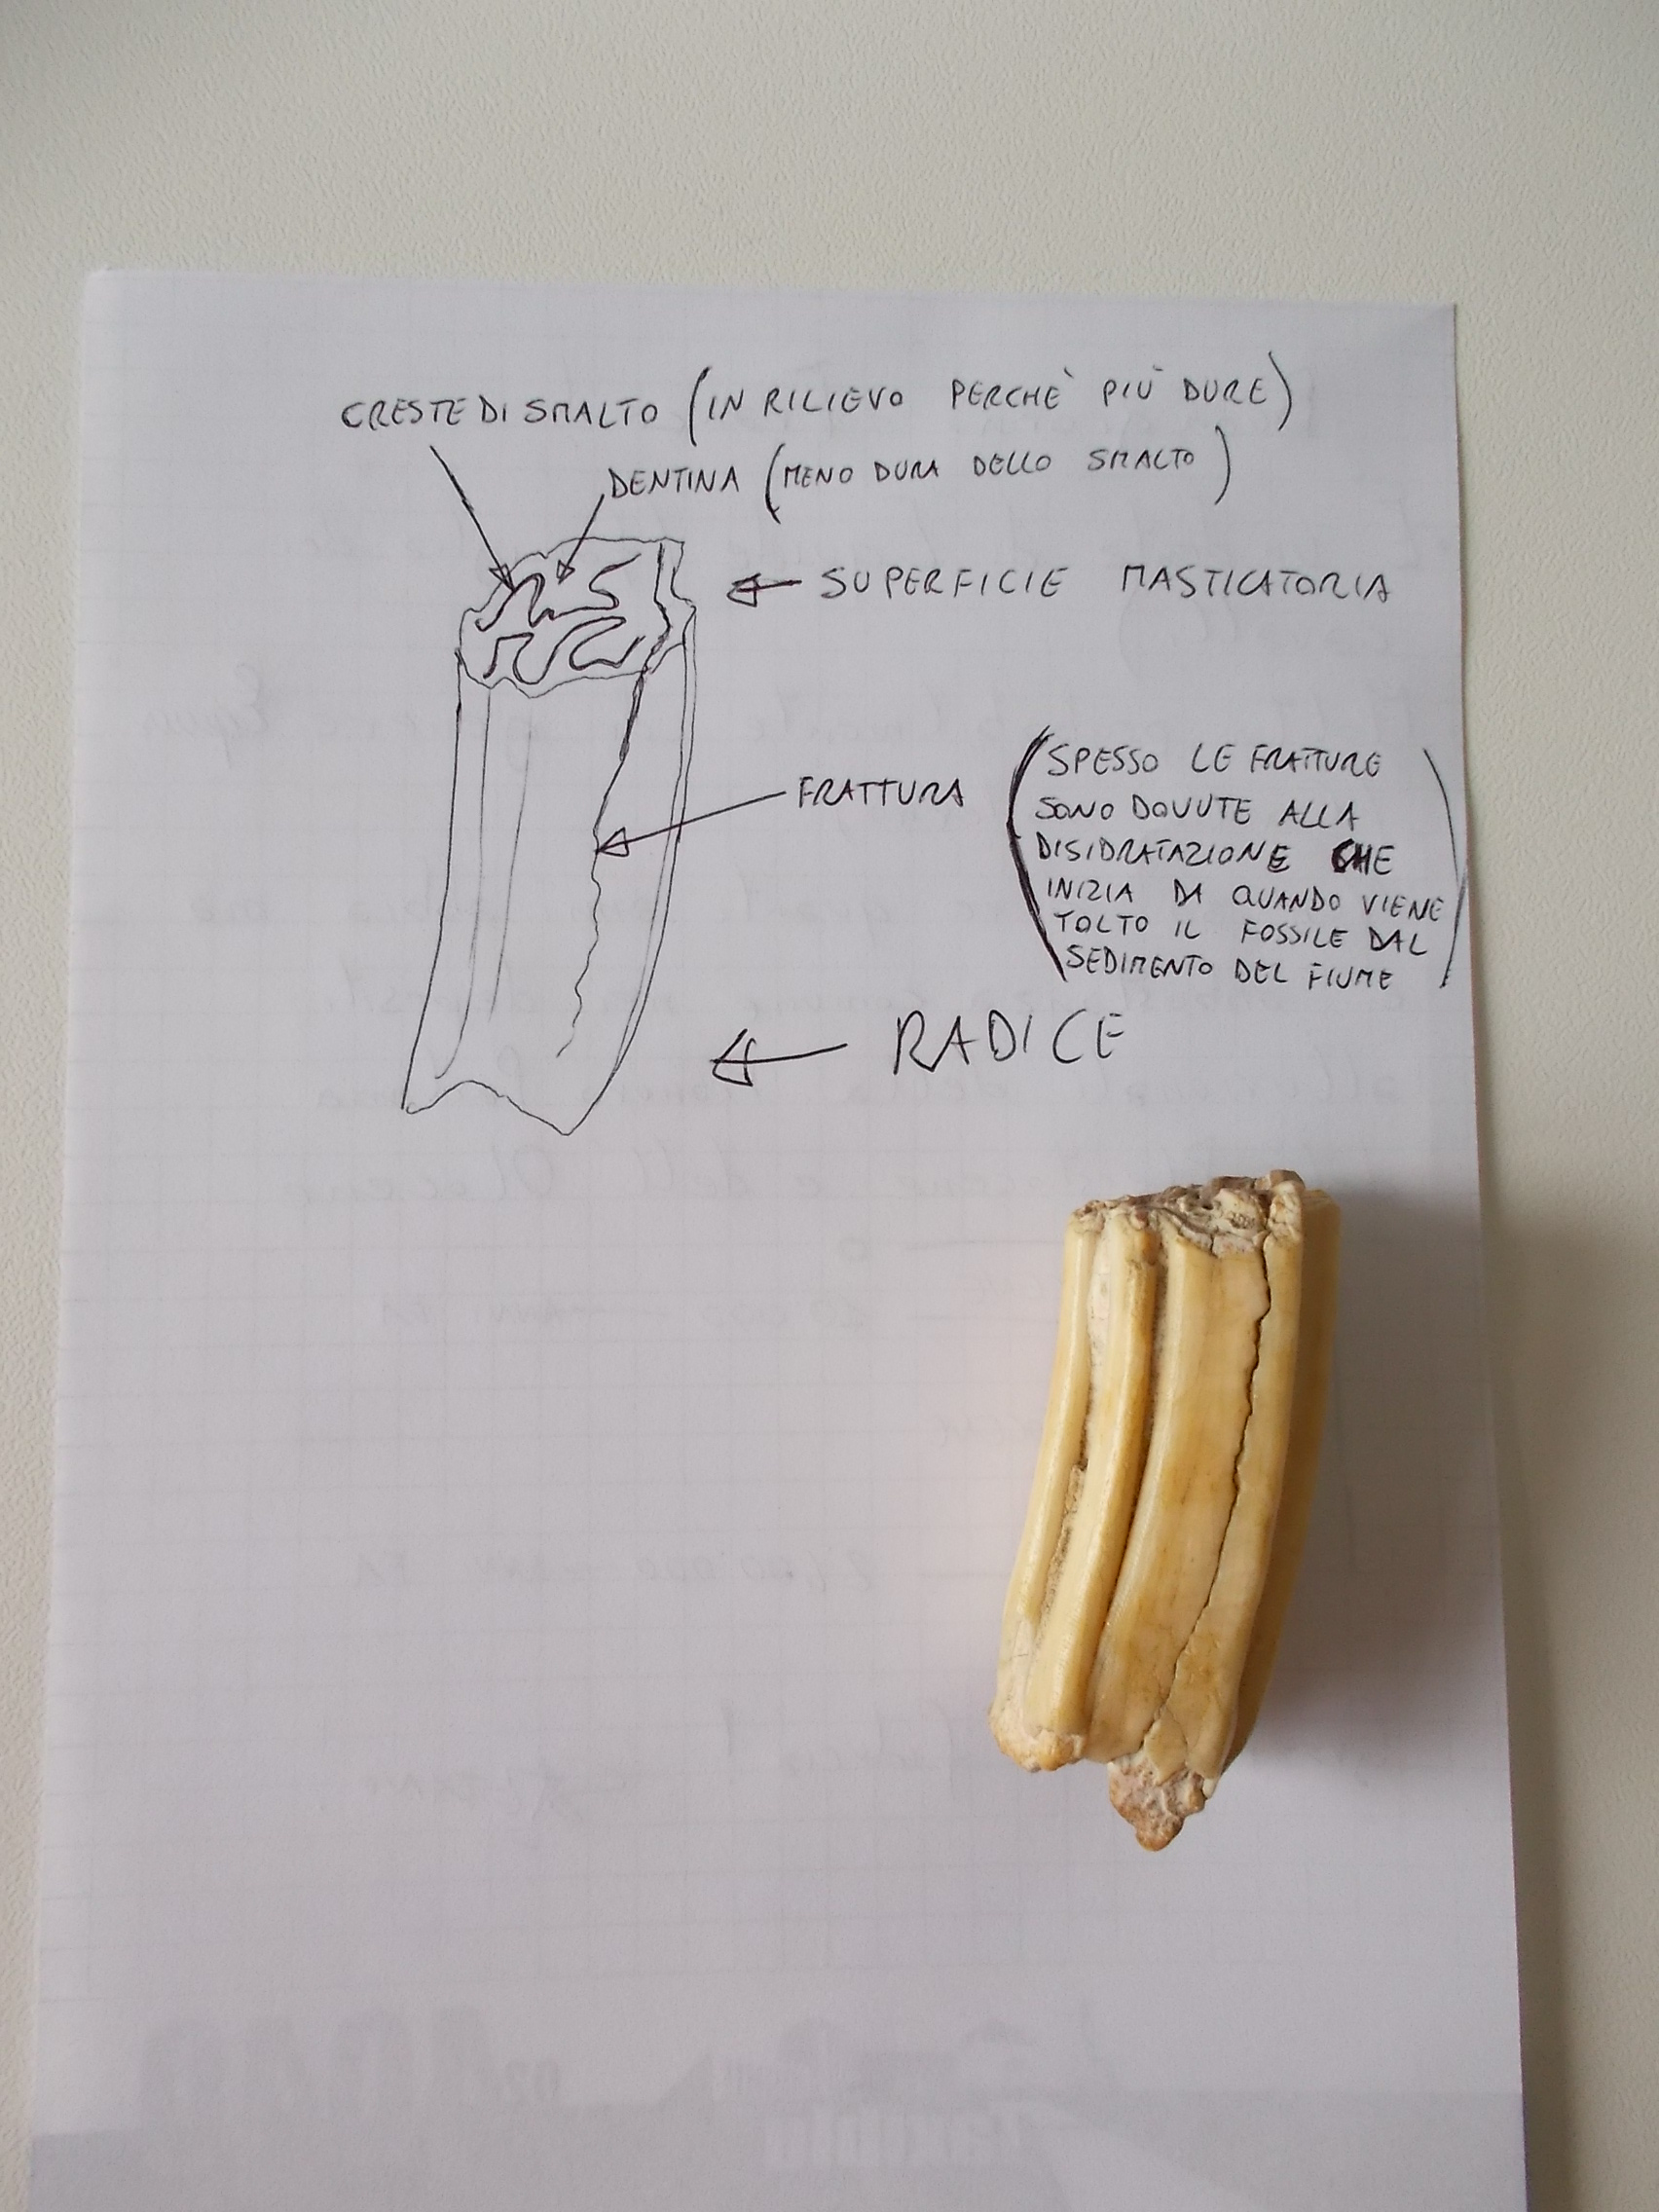 CRESTE DI SMALTO (IN RILIEVO PERCHÈ PIÙ DURE)
DENTINA (MENO DURA DELLO SMALTO)
SUPERFICIE MASTICATORIA
FRATTURA
(SPESSO LE FRATTURE
SONO DOVUTE ALLA
DISIDRATAZIONE CHE
INIZIA DA QUANDO VIENE
TOLTO IL FOSSILE DAL
SEDIMENTO DEL FIUME)
RADICE